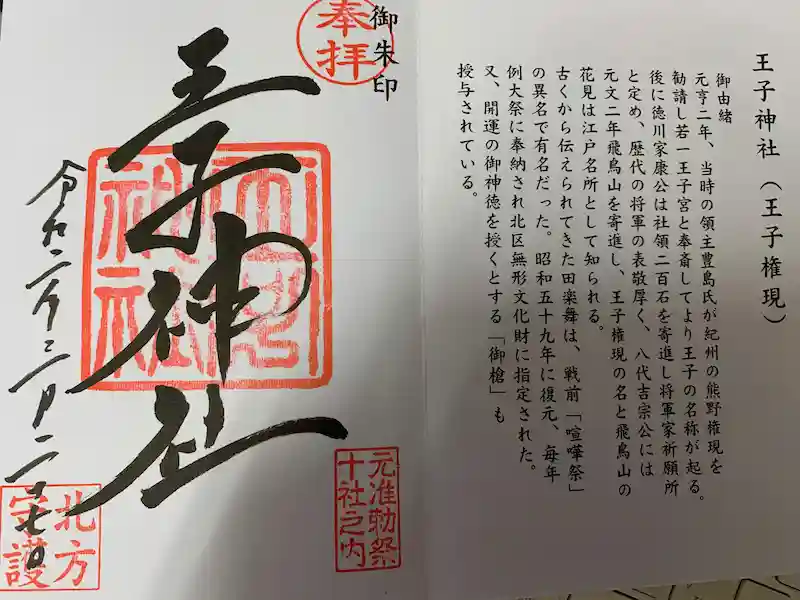 王子神社（王子権現）
御由緒
元亨二年、当時の領主豊島氏が紀州の熊野権現を
勧請し若一王子宮と奉斎してより王子の名称が起る。
後に徳川家康公は社領二百石を寄進し将軍家祈願所
と定め、歴代の将軍の表敬厚く、八代吉宗公には
元文二年飛鳥山を寄進し、王子権現の名と飛鳥山の
花見は江戸名所として知られる。
古くから伝えられてきた田楽舞は、戦前「喧嘩祭」
の異名で有名だった。昭和五十九年に復元、毎年
例大祭に奉納され北区無形文化財に指定された。
又、開運の御神徳を授くとする「御槍」も
授与されている。
御朱印
奉拝
王子神社
元准勅祭
十社之内
北方
守護